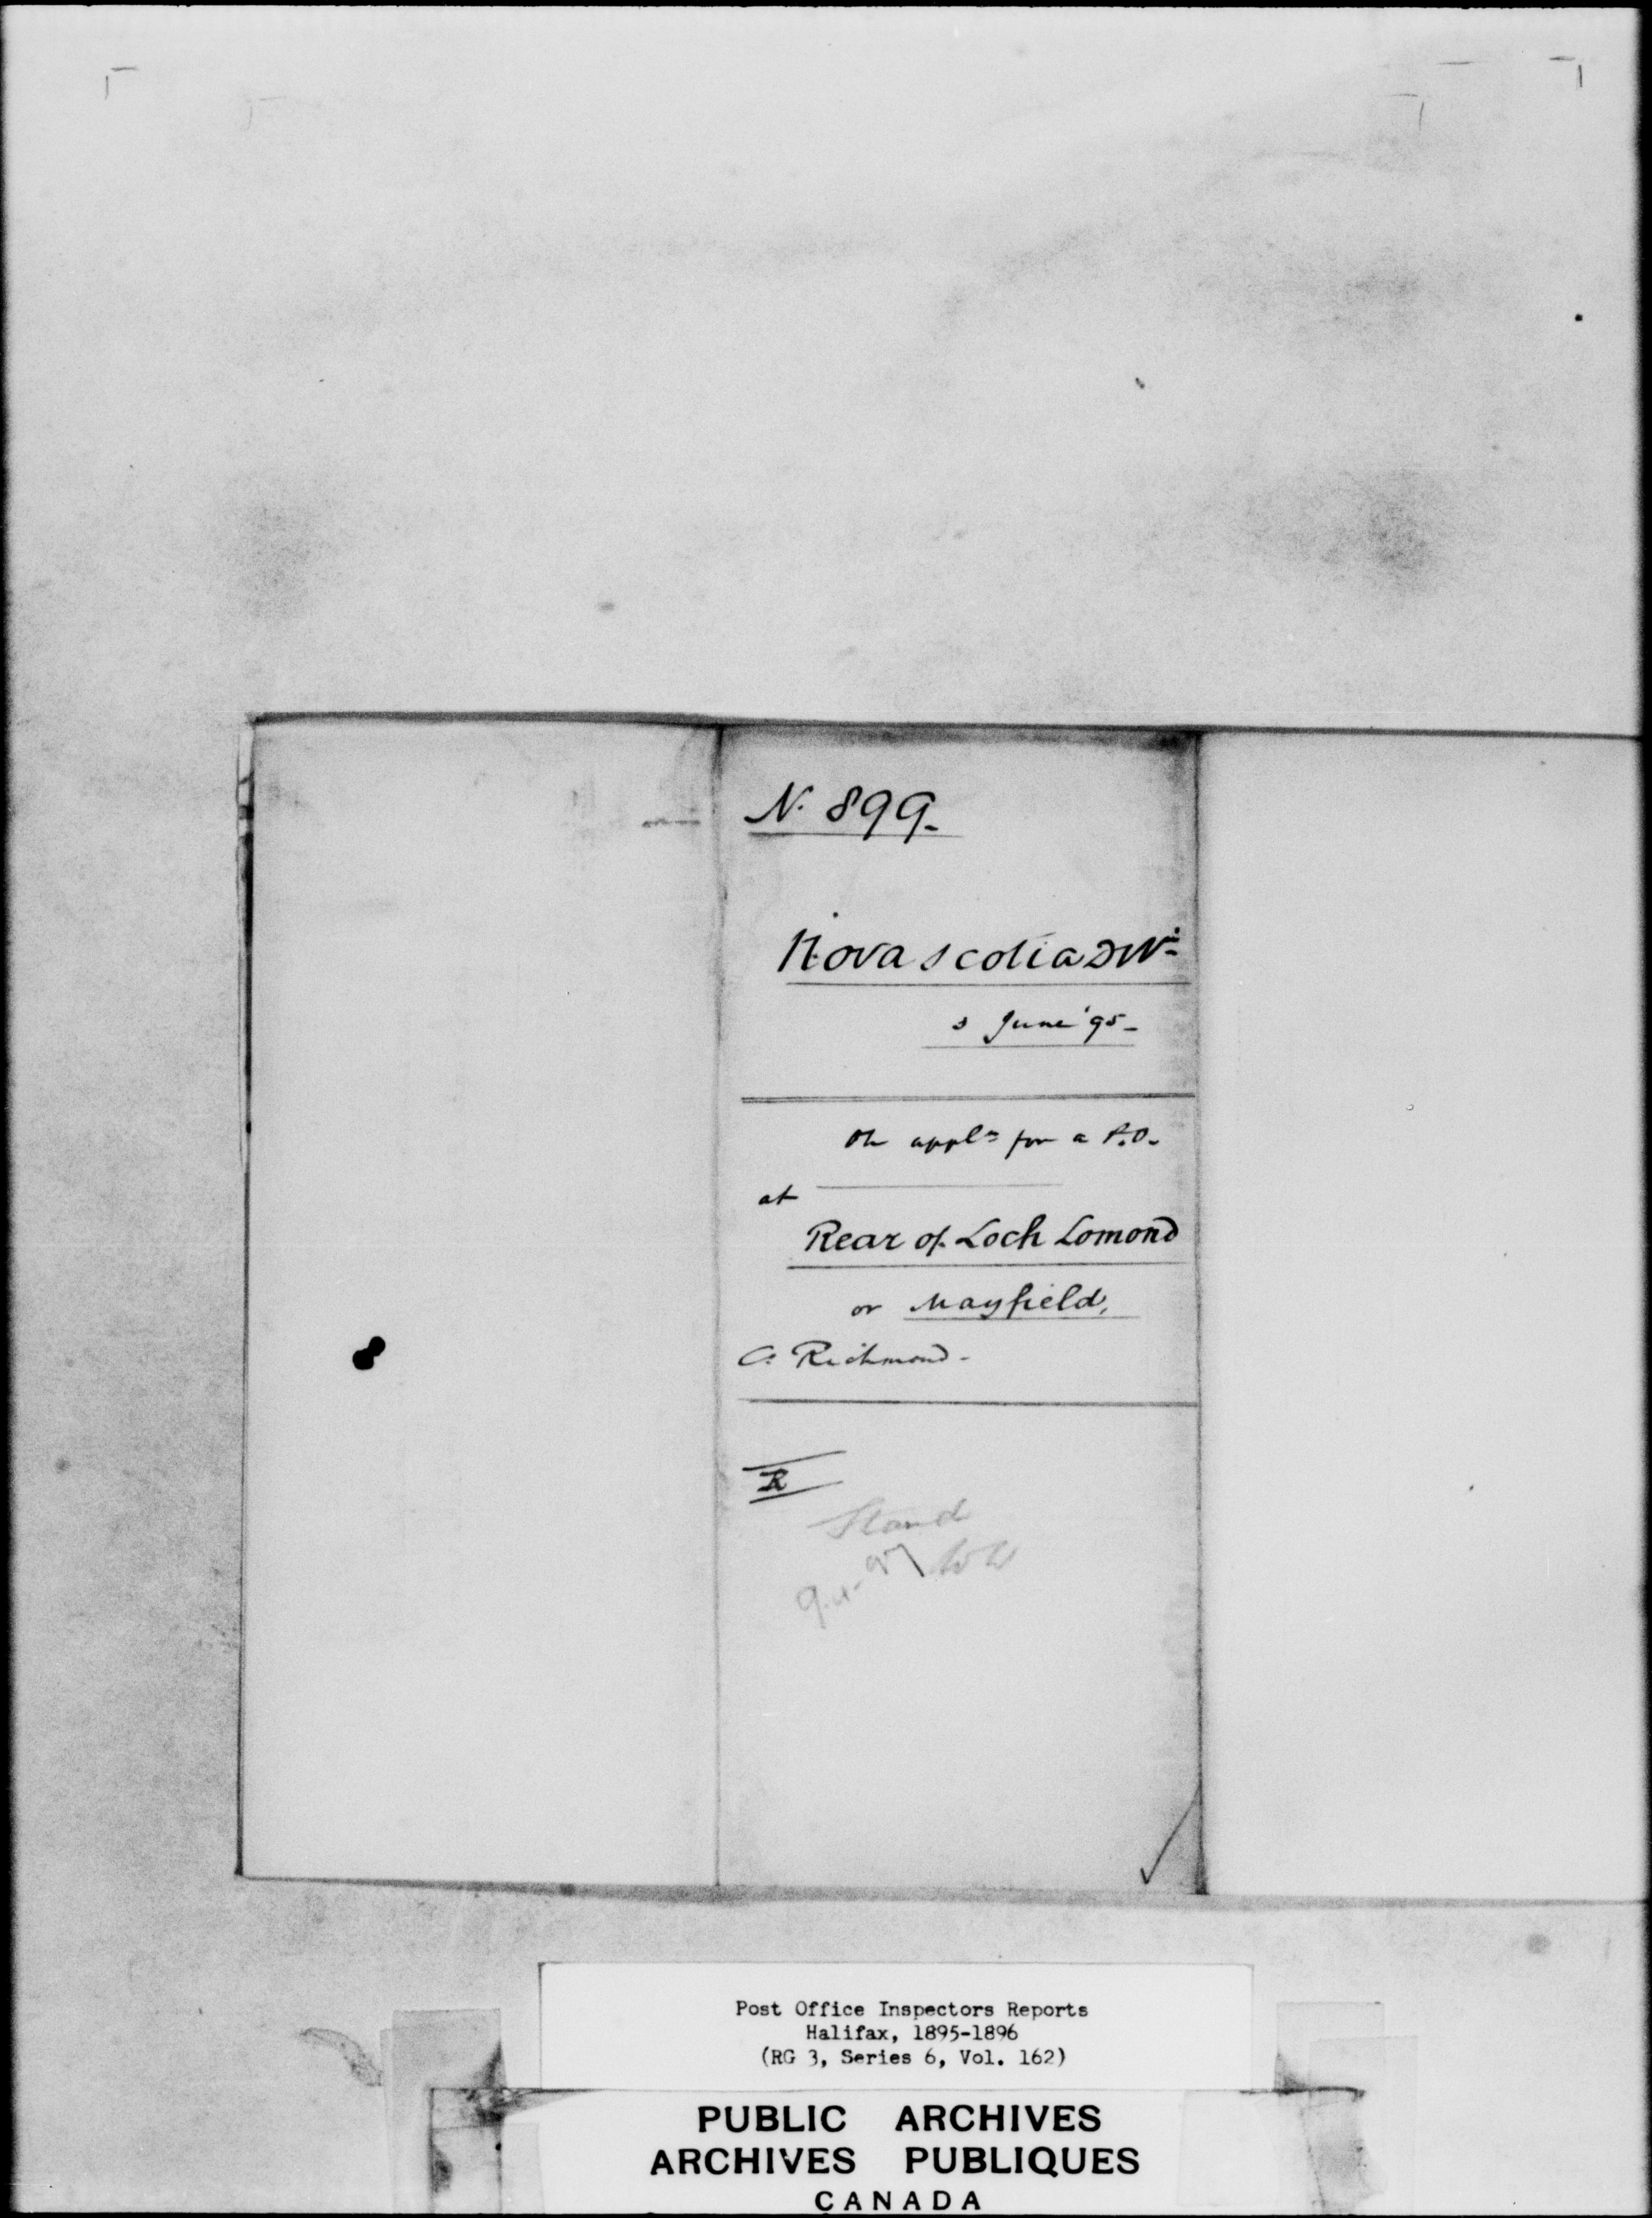 N. 899.
Nova Scotia Dn.
3 June '95-
On appln for a P.O.
at
Rear of Loch Lomond
or Mayfield,
C. Richmond-
R
Stand
Post Office Inspectors Reports
Halifax, 1895-1896
(RG 3, Series 6, Vol. 162)
PUBLIC ARCHIVES
ARCHIVES PUBLIQUES
CANADA